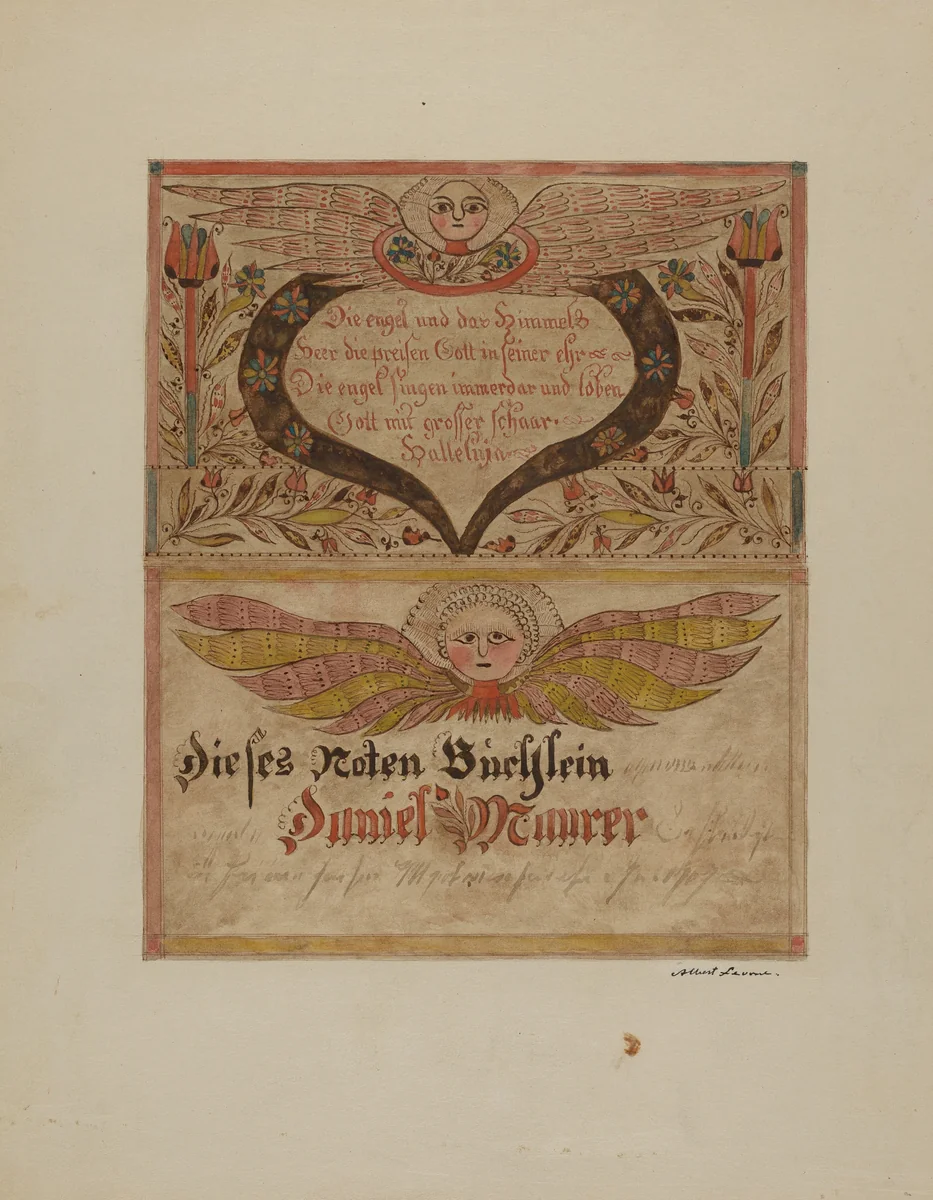 Die engel und das Himmels
Heer die preisen Gott in seiner ehr
Die engel singen immerdar und loben
Gott mit grosser schaar.
Halleluja
Dieses Noten Büchlein
Daniel Maurer
Albert Levone.